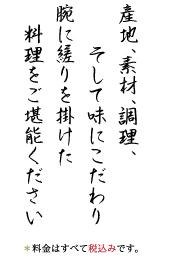 産地、素材、調理、
そして味にこだわり
腕に縒りを掛けた
料理をご堪能ください
＊料金はすべて税込みです。